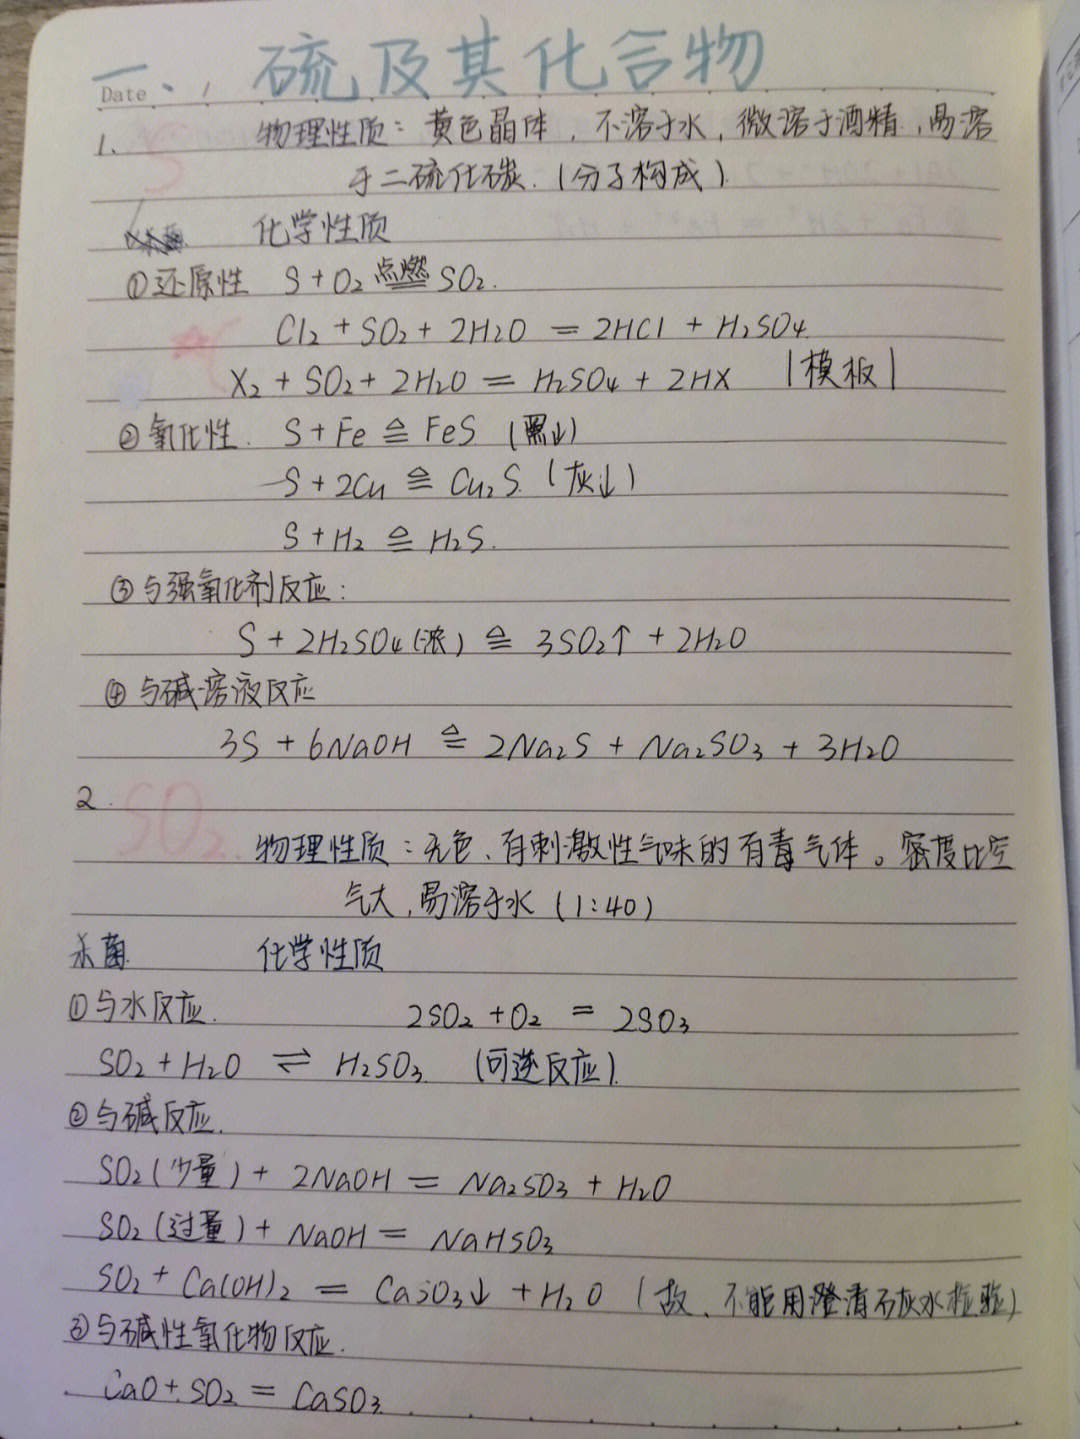 一、硫及其化合物
Date
1. S 物理性质：黄色晶体，不溶于水，微溶于酒精，易溶
于二硫化碳.（分子构成）.
化学性质
①还原性 S+O₂ 点燃═ SO₂.
Cl₂+SO₂+2H₂O = 2HCl+H₂SO₄
X₂+SO₂+2H₂O = H₂SO₄+2HX |模板|
②氧化性. S+Fe ≙ FeS (黑↓)
S+2Cu ≙ Cu₂S. (灰↓)
S+H₂ ≙ H₂S.
③与强氧化剂反应：
S+2H₂SO₄(浓) ≙ 3SO₂↑+2H₂O
④与碱溶液反应
3S+6NaOH ≙ 2Na₂S+Na₂SO₃+3H₂O
2. SO₂.
物理性质：无色、有刺激性气味的有毒气体。密度比空
气大，易溶于水（1:40）
杀菌 化学性质
①与水反应. 2SO₂+O₂ = 2SO₃
SO₂+H₂O ⇌ H₂SO₃ (可逆反应).
②与碱反应.
SO₂(少量)+2NaOH = Na₂SO₃+H₂O
SO₂(过量)+NaOH = NaHSO₃
SO₂+Ca(OH)₂ = CaSO₃↓+H₂O (故、不能用澄清石灰水检验)
③与碱性氧化物反应.
CaO+SO₂ = CaSO₃.